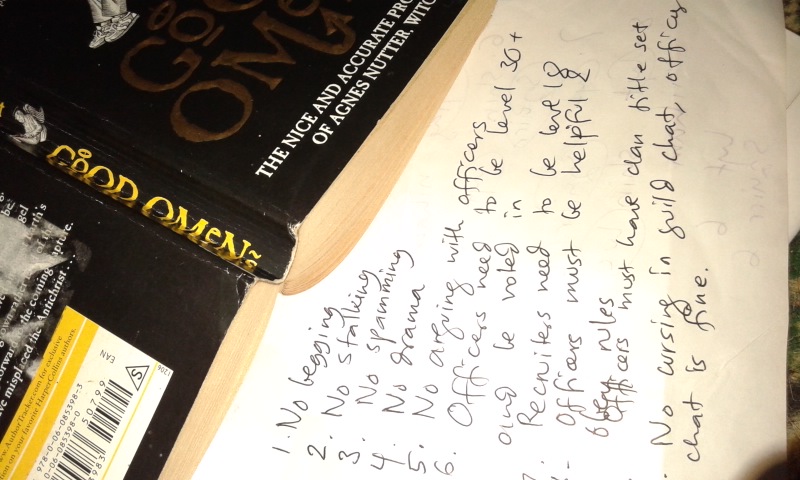 gel
rth's
orward to the coming Rapture.
have misplaced the Antichrist . . .
www.AuthorTracker.com for exclusive
on your favorite HarperCollins authors.
978-0-06-085398-3
0-06-085398-0
50799
EAN
S
1206
GOOD OMENS
GOOD
OMENS
THE NICE AND ACCURATE PRO
OF AGNES NUTTER, WITC
1. No begging
2. No stalking
3. No spamming
4. No drama
5. No arguing with officers
6. Officers need to be level 30+
and be voted in
7. Recruiters need to be level 18
- Officers must be helpful &
obey rules
. Officers must have clan title set
. No cursing in guild chat, officer
chat is fine.